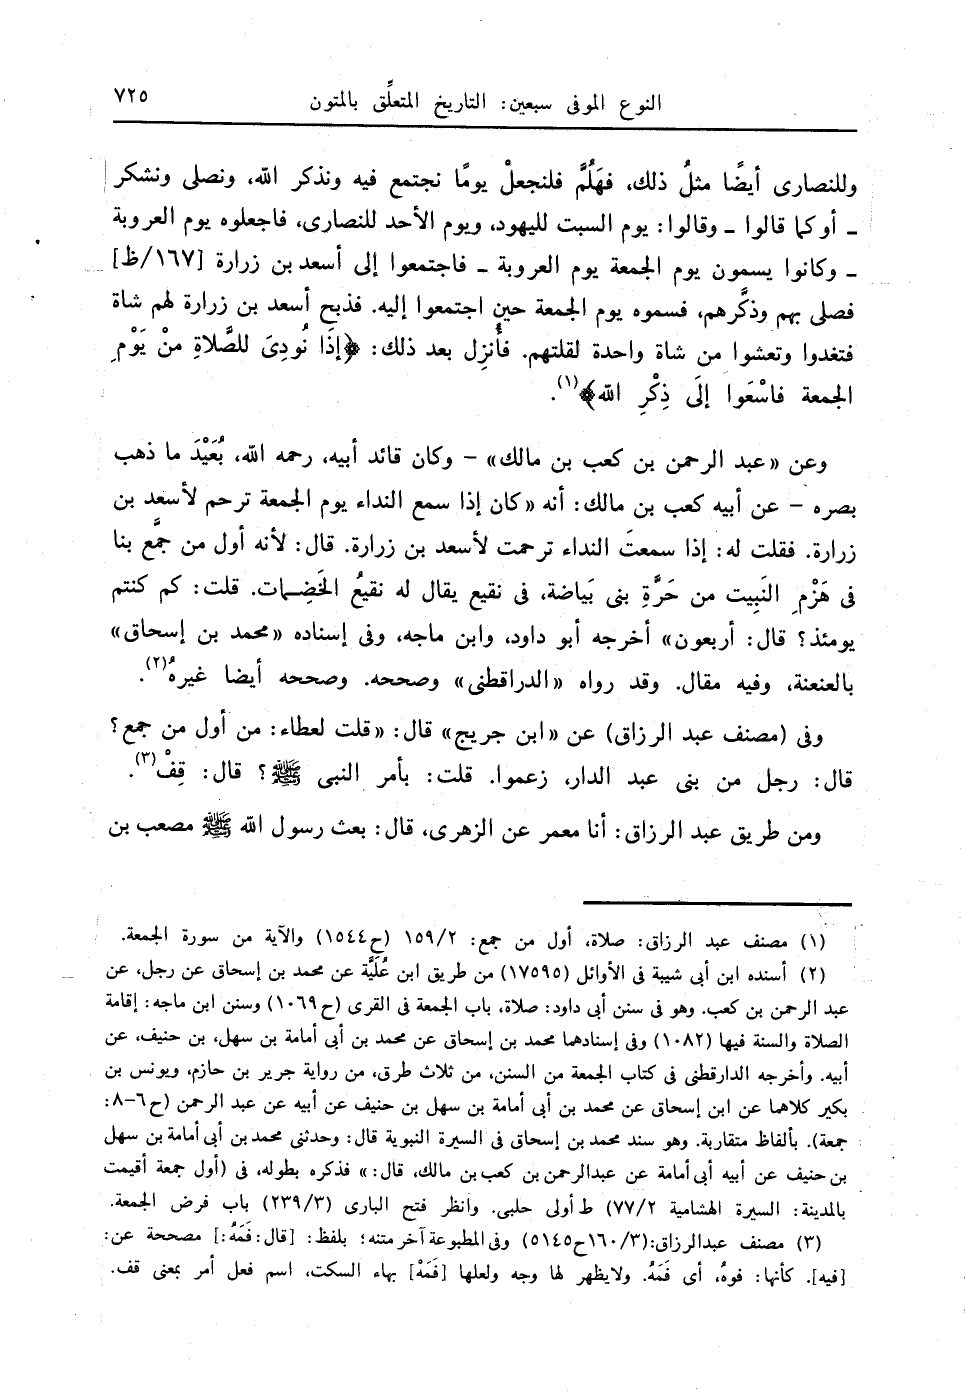 النوع الموفى سبعين: التاريخ المتعلِّق بالمتون ٧٢٥
وللنصارى أيضًا مثلُ ذلك، فهَلُمَّ فلنجعلْ يومًا نجتمع فيه ونذكر الله، ونصلى ونشكر
ـ أو كما قالوا ـ وقالوا: يوم السبت لليهود، ويوم الأحد للنصارى، فاجعلوه يوم العروبة
ـ وكانوا يسمون يوم الجمعة يوم العروبة ـ فاجتمعوا إلى أسعد بن زرارة [١٦٧/ظ]
فصلى بهم وذكَّرهم، فسموه يوم الجمعة حين اجتمعوا إليه. فذبح أسعد بن زرارة لهم شاة
فتغدوا وتعشوا من شاة واحدة لقلتهم. فأُنزِل بعد ذلك: ﴿إذَا نُودِىَ للصَّلاةِ منْ يَوْمِ
الجمعة فاسْعَوا إلَى ذِكْرِ الله﴾(١).
وعن «عبد الرحمن بن كعب بن مالك» – وكان قائد أبيه، رحمه الله، بُعَيْدَ ما ذهب
بصره – عن أبيه كعب بن مالك: أنه «كان إذا سمع النداء يوم الجمعة ترحم لأسعد بن
زرارة. فقلت له: إذا سمعتَ النداء ترحمت لأسعد بن زرارة. قال: لأنه أول من جمَّع بنا
فى هَزْمِ النَبِيت من حَرَّةِ بنى بَياضة، فى نقيع يقال له نقيعُ الخَضِمات. قلت: كم كنتم
يومئذ؟ قال: أربعون» أخرجه أبو داود، وابن ماجه، وفى إسناده «محمد بن إسحاق»
بالعنعنة، وفيه مقال. وقد رواه «الدراقطنى» وصححه. وصححه أيضا غيرهُ(٢).
وفى (مصنف عبد الرزاق) عن «ابن جريج» قال: «قلت لعطاء: من أول من جمع؟
قال: رجل من بنى عبد الدار، زعموا. قلت: بأمر النبى ﷺ؟ قال: قِفْ(٣).
ومن طريق عبد الرزاق: أنا معمر عن الزهرى، قال: بعث رسول الله ﷺ مصعب بن
(١) مصنف عبد الرزاق: صلاة، أول من جمع: ١٥٩/٢ (ح١٥٤٤) والآية من سورة الجمعة.
(٢) أسنده ابن أبى شيبة فى الأوائل (١٧٥٩٥) من طريق ابن عُلَيَّة عن محمد بن إسحاق عن رجل، عن
عبد الرحمن بن كعب. وهو فى سنن أبى داود: صلاة، باب الجمعة فى القرى (ح١٠٦٩) وسنن ابن ماجه: إقامة
الصلاة والسنة فيها (١٠٨٢) وفى إسنادهما محمد بن إسحاق عن محمد بن أبى أمامة بن سهل، بن حنيف، عن
أبيه. وأخرجه الدارقطنى فى كتاب الجمعة من السنن، من ثلاث طرق، من رواية جرير بن حازم، ويونس بن
بكير كلاهما عن ابن إسحاق عن محمد بن أبى أمامة بن سهل بن حنيف عن أبيه عن عبد الرحمن (ح٦–٨:
جمعة). بألفاظ متقاربة. وهو سند محمد بن إسحاق فى السيرة النبوية قال: وحدثنى محمد بن أبى أمامة بن سهل
بن حنيف عن أبيه أبى أمامة عن عبدالرحمن بن كعب بن مالك، قال:» فذكره بطوله، فى (أول جمعة أقيمت
بالمدينة: السيرة الهشامية ٧٧/٢) ط أولى حلبى. وانظر فتح البارى (٢٣٩/٣) باب فرض الجمعة.
(٣) مصنف عبدالرزاق:(١٦٠/٣ح٥١٤٥) وفى المطبوعة آخر متنه؛ بلفظ: [قال: فَمَهُ:] مصححة عن:
[فيه]. كأنها: فوهُ، أى فَمَهُ. ولايظهر لها وجه ولعلها [فَمَهْ] بهاء السكت، اسم فعل أمر بمعنى قف.